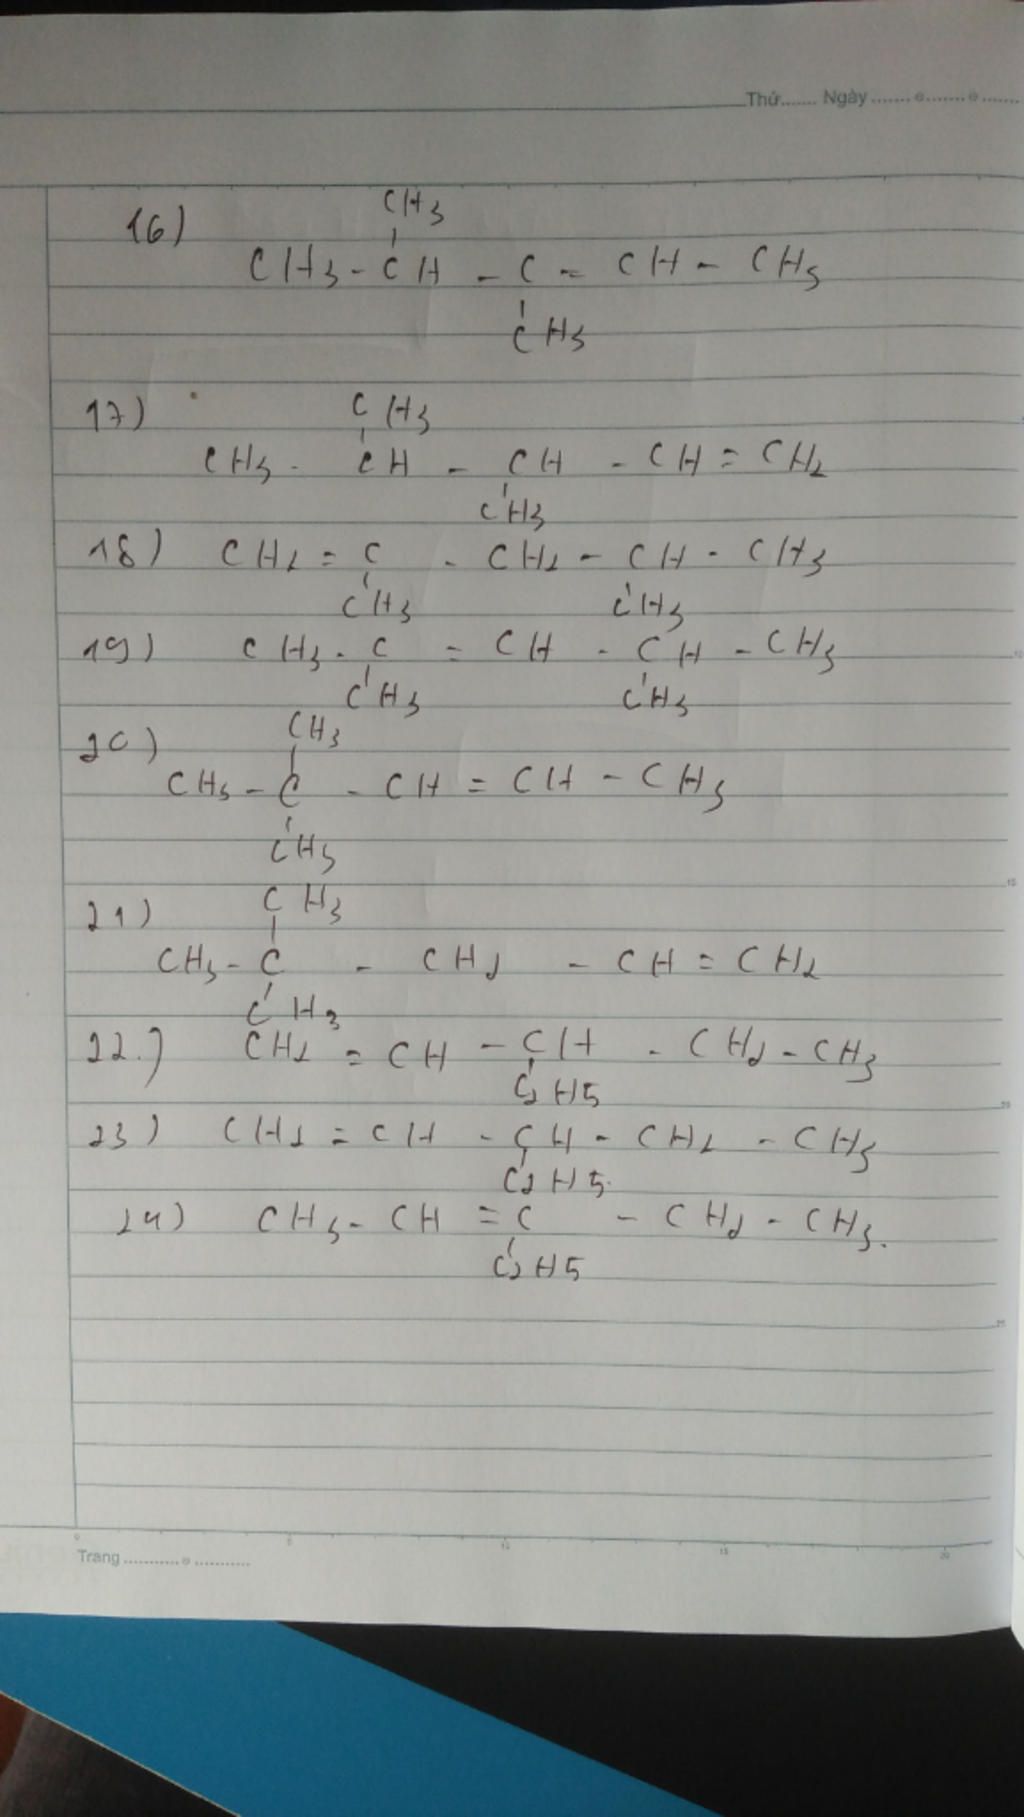 Thứ....... Ngày ....... e ....... e .......
CH3
16)
CH3 - CH - C = CH - CH3
CH3
17) CH3
CH3 - CH - CH - CH = CH2
CH3
18) CH2 = C - CH2 - CH - CH3
CH3 CH3
19) CH3 - C = CH - CH - CH3
CH3 CH3
20) CH3
CH3 - C - CH = CH - CH3
CH3
21) CH3
CH3 - C - CH2 - CH = CH2
CH3
22.) CH2 = CH - CH - CH2 - CH3
C2H5
23) CH2 = CH - CH - CH2 - CH3
C2H5.
24) CH3 - CH = C - CH2 - CH3.
C2H5
Trang ........... e ...........